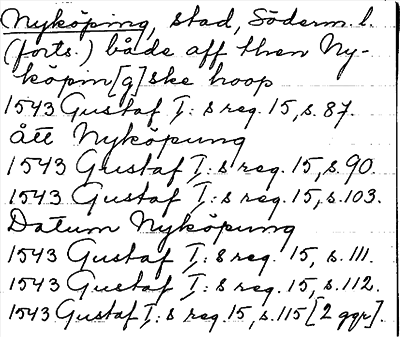 Nyköping, stad, Söderm. l.
(forts.) både aff then Ny-
köpin[g]ske hoop
1543 Gustaf I:s reg. 15, s. 87.
ått Nyköpung
1543 Gustaf I:s reg. 15, s. 90.
1543 Gustaf I:s reg. 15, s. 103.
Datum Nyköpung
1543 Gustaf I:s reg. 15, s. 111.
1543 Gustaf I:s reg. 15, s. 112.
1543 Gustaf I:s reg. 15, s. 115 [2 ggr].